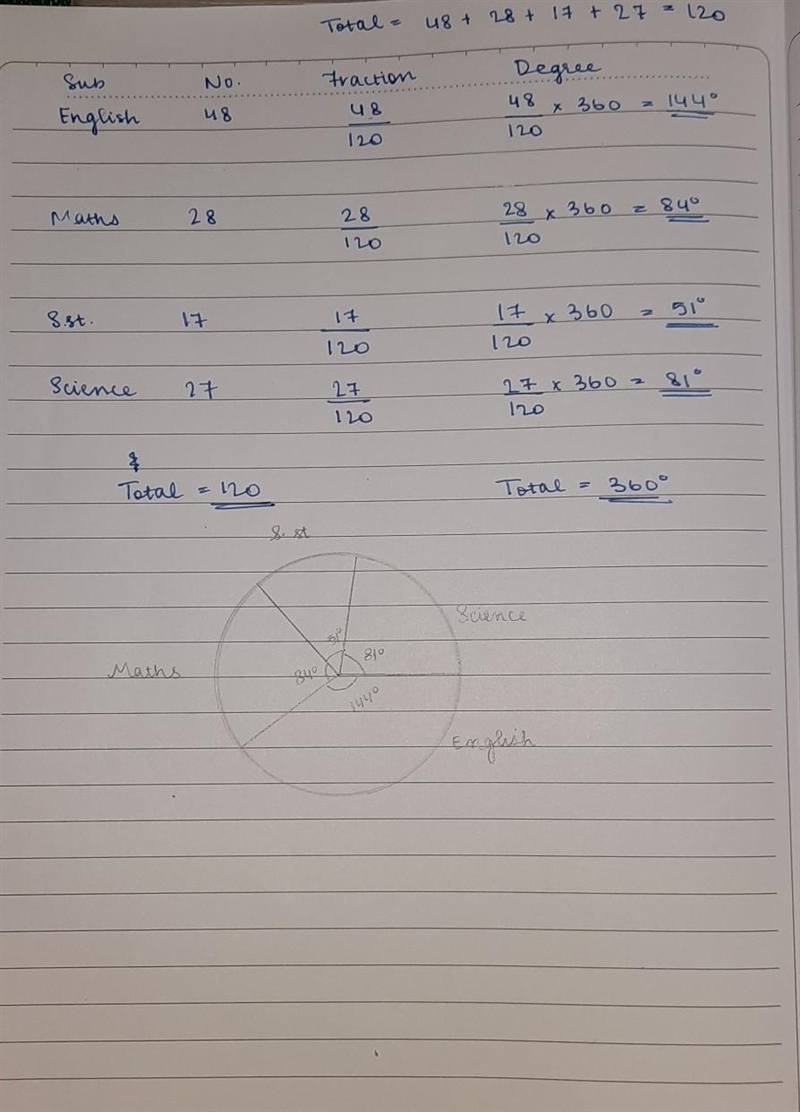 Total = 48 + 28 + 17 + 27 = 120
Sub No. Fraction Degree
English 48 48/120 48/120 × 360 = 144°
Maths 28 28/120 28/120 × 360 = 84°
S.st. 17 17/120 17/120 × 360 = 51°
Science 27 27/120 27/120 × 360 = 81°
Total = 120 Total = 360°
S. st
Science
51°
81°
Maths 84°
144°
English